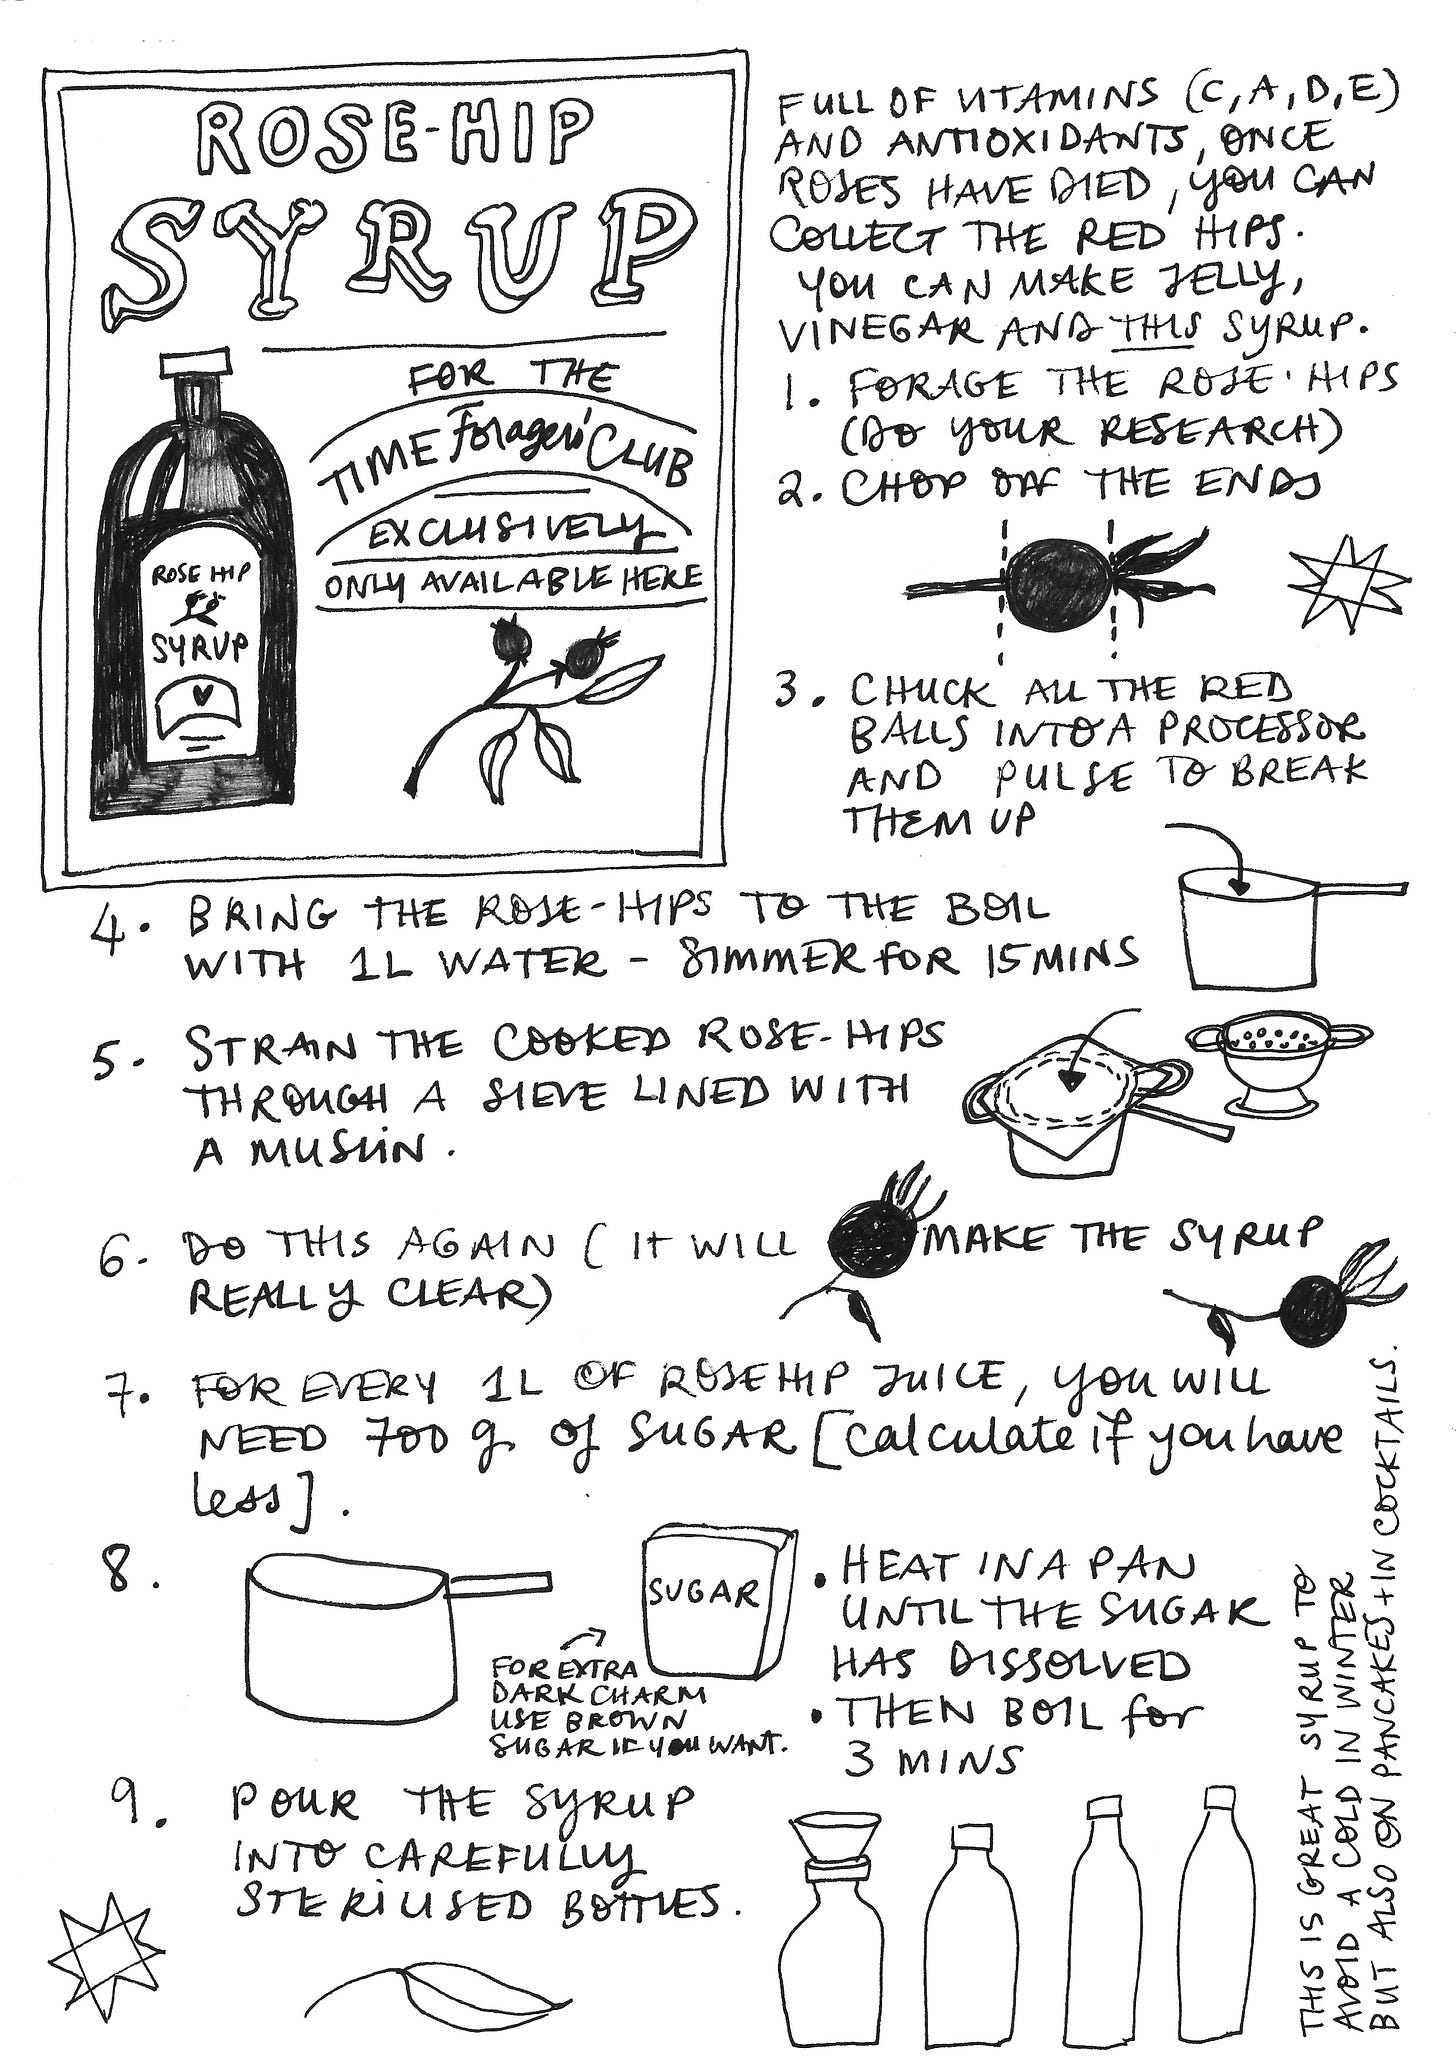 ROSE-HIP
SYRUP
FOR THE
TIME Foragers' CLUB
EXCLUSIVELY
ONLY AVAILABLE HERE
ROSE HIP
SYRUP
FULL OF VITAMINS (C, A, D, E)
AND ANTIOXIDANTS, ONCE
ROSES HAVE DIED, YOU CAN
COLLECT THE RED HIPS.
YOU CAN MAKE JELLY,
VINEGAR AND THIS SYRUP.
1. FORAGE THE ROSE-HIPS
(DO YOUR RESEARCH)
2. CHOP OFF THE ENDS
3. CHUCK ALL THE RED
BALLS INTO A PROCESSOR
AND PULSE TO BREAK
THEM UP
4. BRING THE ROSE-HIPS TO THE BOIL
WITH 1L WATER - SIMMER FOR 15 MINS
5. STRAIN THE COOKED ROSE-HIPS
THROUGH A SIEVE LINED WITH
A MUSLIN.
6. DO THIS AGAIN (IT WILL MAKE THE SYRUP
REALLY CLEAR)
7. FOR EVERY 1L OF ROSEHIP JUICE, YOU WILL
NEED 700 g. of SUGAR [calculate if you have
less].
8.
SUGAR
FOR EXTRA
DARK CHARM
USE BROWN
SUGAR IF YOU WANT.
• HEAT IN A PAN
UNTIL THE SUGAR
HAS DISSOLVED
• THEN BOIL for
3 MINS
9. POUR THE SYRUP
INTO CAREFULLY
STERILISED BOTTLES.
THIS IS GREAT SYRUP TO
AVOID A COLD IN WINTER
BUT ALSO ON PANCAKES + IN COCKTAILS.